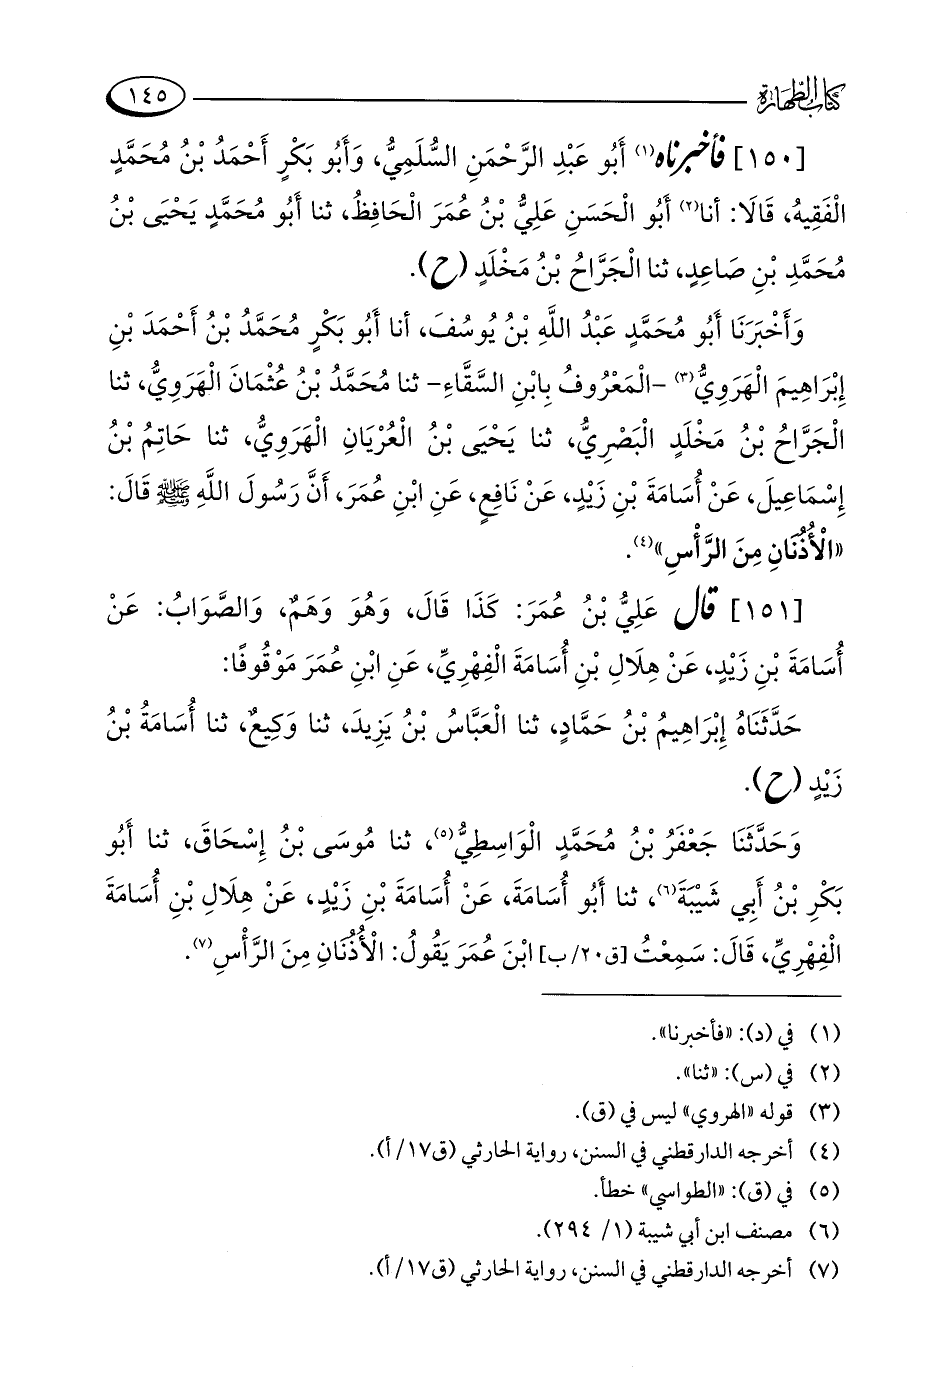 كتاب الطهارة ١٤٥
[١٥٠] فأخبرناه(١) أَبُو عَبْدِ الرَّحْمَنِ السُّلَمِيُّ، وَأَبُو بَكْرٍ أَحْمَدُ بْنُ مُحَمَّدٍ
الْفَقِيهُ، قَالَا: أنا(٢) أَبُو الْحَسَنِ عَلِيُّ بْنُ عُمَرَ الْحَافِظُ، ثنا أَبُو مُحَمَّدٍ يَحْيَى بْنُ
مُحَمَّدِ بْنِ صَاعِدٍ، ثنا الْجَرَّاحُ بْنُ مَخْلَدٍ (ح).
وَأَخْبَرَنَا أَبُو مُحَمَّدٍ عَبْدُ اللَّهِ بْنُ يُوسُفَ، أنا أَبُو بَكْرٍ مُحَمَّدُ بْنُ أَحْمَدَ بْنِ
إِبْرَاهِيمَ الْهَرَوِيُّ(٣) -الْمَعْرُوفُ بِابْنِ السَّقَّاءِ- ثنا مُحَمَّدُ بْنُ عُثْمَانَ الْهَرَوِيُّ، ثنا
الْجَرَّاحُ بْنُ مَخْلَدٍ الْبَصْرِيُّ، ثنا يَحْيَى بْنُ الْعُرْيَانِ الْهَرَوِيُّ، ثنا حَاتِمُ بْنُ
إِسْمَاعِيلَ، عَنْ أُسَامَةَ بْنِ زَيْدٍ، عَنْ نَافِعٍ، عَنِ ابْنِ عُمَرَ، أَنَّ رَسُولَ اللَّهِ ﷺ قَالَ:
«الْأُذُنَانِ مِنَ الرَّأْسِ»(٤).
[١٥١] قال عَلِيُّ بْنُ عُمَرَ: كَذَا قَالَ، وَهُوَ وَهَمٌ، وَالصَّوَابُ: عَنْ
أُسَامَةَ بْنِ زَيْدٍ، عَنْ هِلَالِ بْنِ أُسَامَةَ الْفِهْرِيِّ، عَنِ ابْنِ عُمَرَ مَوْقُوفًا:
حَدَّثَنَاهُ إِبْرَاهِيمُ بْنُ حَمَّادٍ، ثنا الْعَبَّاسُ بْنُ يَزِيدَ، ثنا وَكِيعٌ، ثنا أُسَامَةُ بْنُ
زَيْدٍ (ح).
وَحَدَّثَنَا جَعْفَرُ بْنُ مُحَمَّدٍ الْوَاسِطِيُّ(٥)، ثنا مُوسَى بْنُ إِسْحَاقَ، ثنا أَبُو
بَكْرِ بْنُ أَبِي شَيْبَةَ(٦)، ثنا أَبُو أُسَامَةَ، عَنْ أُسَامَةَ بْنِ زَيْدٍ، عَنْ هِلَالِ بْنِ أُسَامَةَ
الْفِهْرِيِّ، قَالَ: سَمِعْتُ [ق٢٠/ب] ابْنَ عُمَرَ يَقُولُ: الْأُذُنَانِ مِنَ الرَّأْسِ(٧).
(١) في (د): «فأخبرنا».
(٢) في (س): «ثنا».
(٣) قوله «الهروي» ليس في (ق).
(٤) أخرجه الدارقطني في السنن، رواية الحارثي (ق١٧/أ).
(٥) في (ق): «الطواسي» خطأ.
(٦) مصنف ابن أبي شيبة (١/ ٢٩٤).
(٧) أخرجه الدارقطني في السنن، رواية الحارثي (ق١٧/أ).